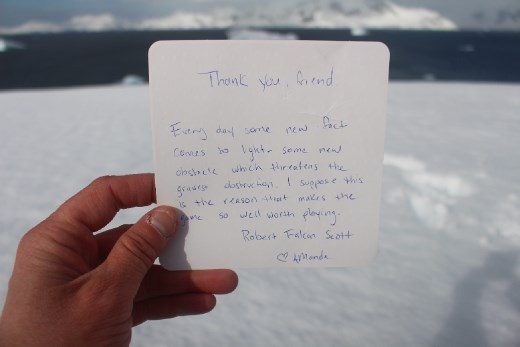 Thank you, friend
Every day some new fact
comes to light - some new
obstacle which threatens the
gravest obstruction. I suppose this
is the reason that makes the
game so well worth playing.
Robert Falcon Scott